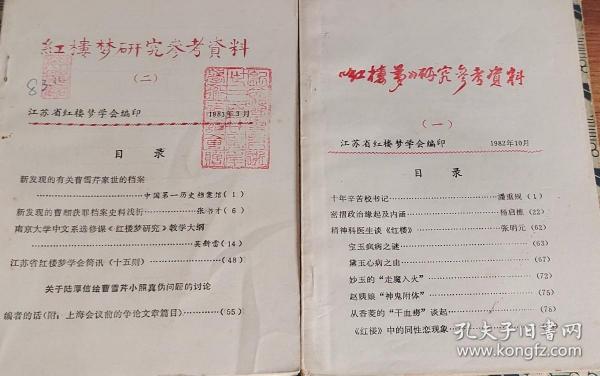 紅楼梦研究参考資料
(二)
83
江苏省红楼梦学会编印 1983年3月
目 录
新发现的有关曹雪芹家世的档案
中国第一历史档案馆(1)
新发现的曹頫获罪档案史料浅析 张书才(6)
南京大学中文系选修课《红楼梦研究》教学大纲
吴新雷(14)
江苏省红楼梦学会简讯(十五则) (48)
关于陆厚信绘曹雪芹小照真伪问题的讨论
编者的话(附:上海会议前的争论文章篇目) (55)
《红楼夢》研究参考資料
(一)
江苏省红楼梦学会编印 1982年10月
目 录
十年辛苦校书记 潘重规(1)
密谓政治缘起及内涵 杨启樵(22)
精神科医生谈《红楼》 张明元(62)
宝玉疯病之谜 (63)
黛玉心病之由 (67)
妙玉的“走魔入火” (72)
赵姨娘“神鬼附体” (75)
从香菱的“干血痨”谈起 (78)
《红楼》中的同性恋现象
孔夫子旧书网
kongfz.com